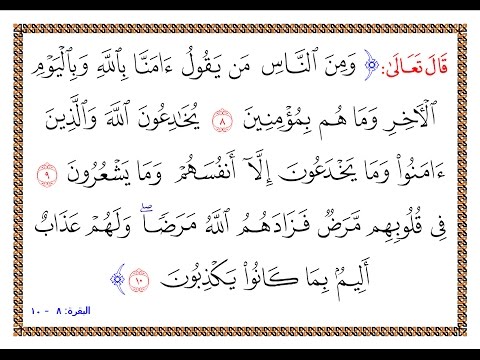 قَالَ تَعَالَىٰ: ﴿ وَمِنَ ٱلنَّاسِ مَن يَقُولُ ءَامَنَّا بِٱللَّهِ وَبِٱلْيَوْمِ
ٱلْأٓخِرِ وَمَا هُم بِمُؤْمِنِينَ ٨ يُخَٰدِعُونَ ٱللَّهَ وَٱلَّذِينَ
ءَامَنُوا۟ وَمَا يَخْدَعُونَ إِلَّآ أَنفُسَهُمْ وَمَا يَشْعُرُونَ ٩
فِى قُلُوبِهِم مَّرَضٌ فَزَادَهُمُ ٱللَّهُ مَرَضًا ۖ وَلَهُمْ عَذَابٌ
أَلِيمٌۢ بِمَا كَانُوا۟ يَكْذِبُونَ ١٠ ﴾
البقرة: ٨ - ١٠